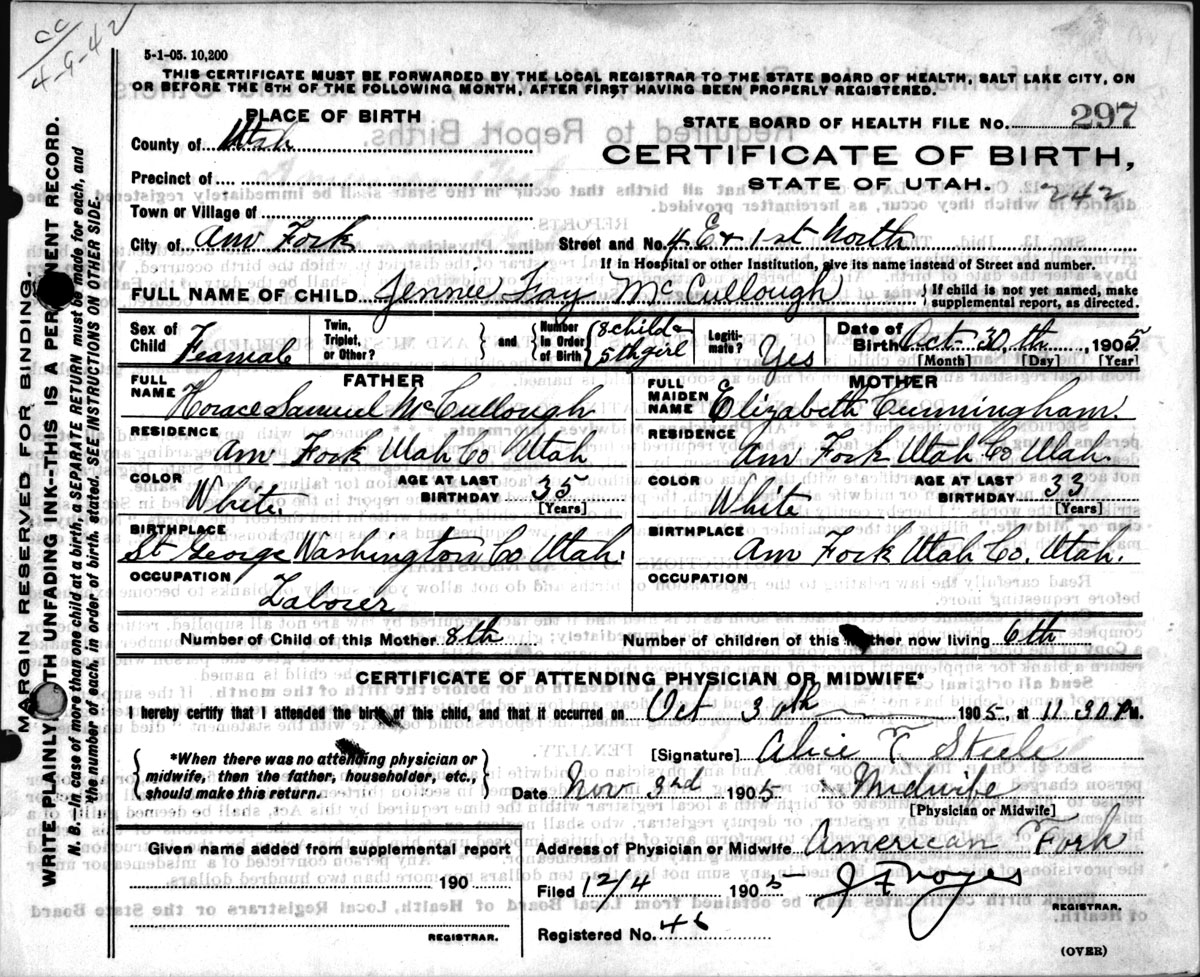 cc
4-9-42
5-1-05. 10,200
THIS CERTIFICATE MUST BE FORWARDED BY THE LOCAL REGISTRAR TO THE STATE BOARD OF HEALTH, SALT LAKE CITY, ON
OR BEFORE THE 5TH OF THE FOLLOWING MONTH, AFTER FIRST HAVING BEEN PROPERLY REGISTERED.
PLACE OF BIRTH
STATE BOARD OF HEALTH FILE No. 297
County of Utah
CERTIFICATE OF BIRTH,
Precinct of
STATE OF UTAH. 242
Town or Village of
City of Am Fork Street and No. 4 E & 1st North
If in Hospital or other Institution, give its name instead of Street and number.
FULL NAME OF CHILD Jennie Fay McCullough { If child is not yet named, make supplemental report, as directed.
Sex of Child Feamale Twin, Triplet, or Other? } and { Number In Order of Birth 8 child 5th girl Legitimate? Yes Date of Birth Oct 30,th, 1905
[Month] [Day] [Year]
FATHER
FULL NAME Horace Samuel McCullough
RESIDENCE
Am Fork Utah Co Utah
COLOR White AGE AT LAST BIRTHDAY 35
[Years]
BIRTHPLACE
St George Washington Co Utah.
OCCUPATION
Laborer
MOTHER
FULL MAIDEN NAME Elizabeth Cunningham.
RESIDENCE
Am Fork Utah Co Utah.
COLOR White AGE AT LAST BIRTHDAY 33
[Years]
BIRTHPLACE
Am Fork Utah Co. Utah.
OCCUPATION
Number of Child of this Mother 8th Number of children of this now living 6th
CERTIFICATE OF ATTENDING PHYSICIAN OR MIDWIFE*
I hereby certify that I attended the birth of this child, and that it occurred on Oct 30th 1905, at 11 30 P M.
{ *When there was no attending physician or
midwife, then the father, householder, etc.,
should make this return. }
[Signature] Alice T Steele
Date Nov 3rd 1905 Midwife
[Physician or Midwife]
Given name added from supplemental report
190
REGISTRAR.
Address of Physician or Midwife American Fork
Filed 12/4 1905 J F Noyes
REGISTRAR.
Registered No. 46
(OVER)
MARGIN RESERVED FOR BINDING.
WRITE PLAINLY WITH UNFADING INK--THIS IS A PERMANENT RECORD.
N. B.--In case of more than one child at a birth, a SEPARATE RETURN must be made for each, and
the number of each, in order of birth, stated. SEE INSTRUCTIONS ON OTHER SIDE.